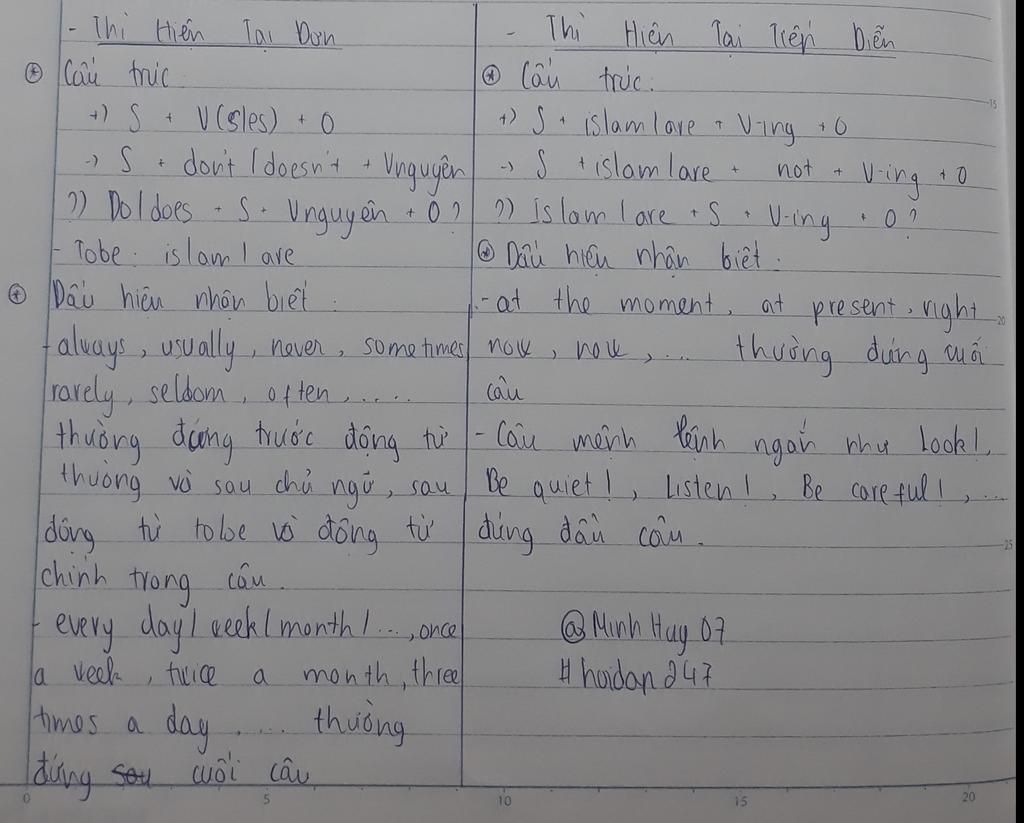 - Thì Hiện Tại Đơn
⊛ Cấu trúc
+) S + V(s/es) + O
-) S + don't / doesn't + Vnguyên
?) Do/does + S + Vnguyên + O?
- Tobe: is/am/are
⊛ Dấu hiệu nhận biết:
- always, usually, never, sometimes
rarely, seldom, often, .....
thường đứng trước động từ
thường và sau chủ ngữ, sau
động từ tobe và động từ
chính trong câu.
- every day/ week/month/..., once
a week, twice a month, three
times a day .... thường
đứng sau cuối câu
- Thì Hiện Tại Tiếp Diễn
⊛ Cấu trúc:
+) S + is/am/are + V-ing + O
-) S + is/am/are + not + V-ing + O
?) is/am/are + S + V-ing + O?
⊛ Dấu hiệu nhận biết:
- at the moment, at present, right
now, now, ... thường đứng cuối
câu
- Câu mệnh lệnh ngắn như Look!,
Be quiet!, Listen!, Be careful!, ...
đứng đầu câu.
@Minh Huy 07
# hoidap247
15
20
25
0 5 10 15 20